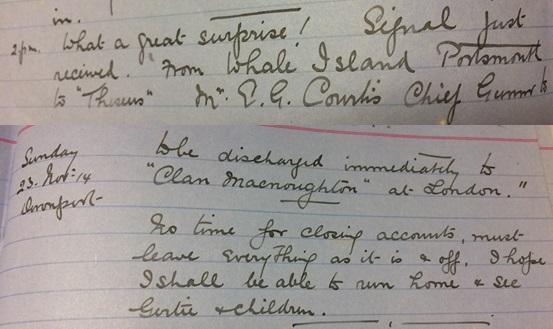 in.
2 pm. What a great surprise! Signal just
received. "From Whale Island Portsmouth
to "Theseus" Mr. E.G. Courtis Chief Gunner to
Sunday
23. Nov: 14
Devonport
to be discharged immediately to
"Clan Macnoughton" at London."
No time for closing accounts, must
leave everything as it is & off. I hope
I shall be able to run home & see
Gertie & children.